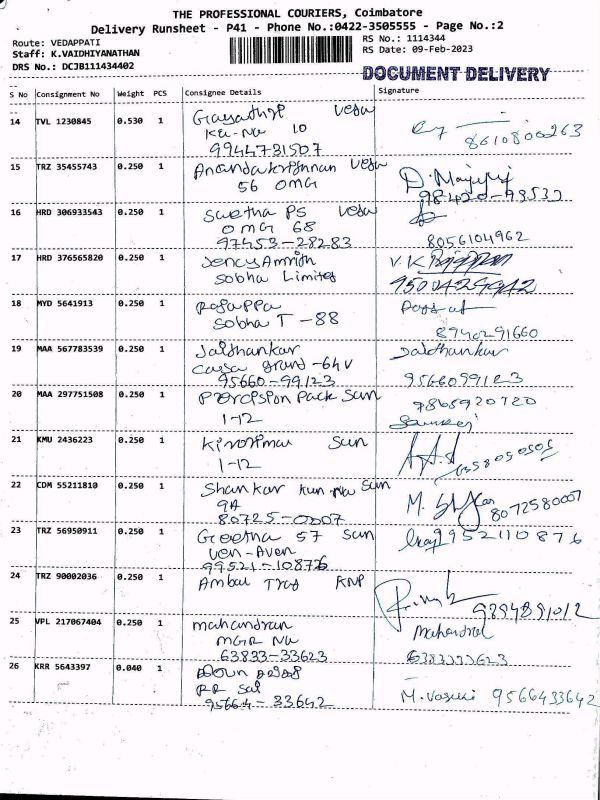 THE PROFESSIONAL COURIERS, Coimbatore
Delivery Runsheet - P41 - Phone No.:0422-3505555 - Page No.:2
Route: VEDAPPATI
Staff: K.VAIDHIYANATHAN
DRS No.: DCJB111434402
RS No.: 1114344
RS Date: 09-Feb-2023
DOCUMENT DELIVERY
S No Consignment No Weight PCS Consignee Details Signature
14 TVL 1230845 0.530 1 Gayathri veda
KG-NG 10
9944731507
8610800263
15 TRZ 35455743 0.250 1 Anandakrishnan veda
56 OMG
98420-98532
16 HRD 306933543 0.250 1 Swetha PS veda
OMG 68
97453-28283
8056104962
17 HRD 376565820 0.250 1 Jency Amrith
Sobha Limited
V.K Rajappan
9500429942
18 MYD 5641913 0.250 1 Rajappa
Sobha T-88
8940291660
19 MAA 567783539 0.250 1 Jaidhankar
Casa grand-64V
95660-99123
Jaidhankar
9566099123
20 MAA 297751508 0.250 1 Parcision Pack Sun
1-12
9865920720
21 KMU 2436223 0.250 1 Sun
1-12
22 CDM 55211810 0.250 1 Shankar Sun
9A
80725-0007
8072580007
23 TRZ 56950911 0.250 1 Geetha 57 Sun
Ven-Aven
99521-10876
9952110876
24 TRZ 90002036 0.250 1 Ambal KNP
9894891012
25 VPL 217067404 0.250 1 mahandran
MGR Na
63833-33623
Mahendral
6383333623
26 KRR 5643397 0.040 1
RR Sal
95664-33642
M.Vasuki 9566433642